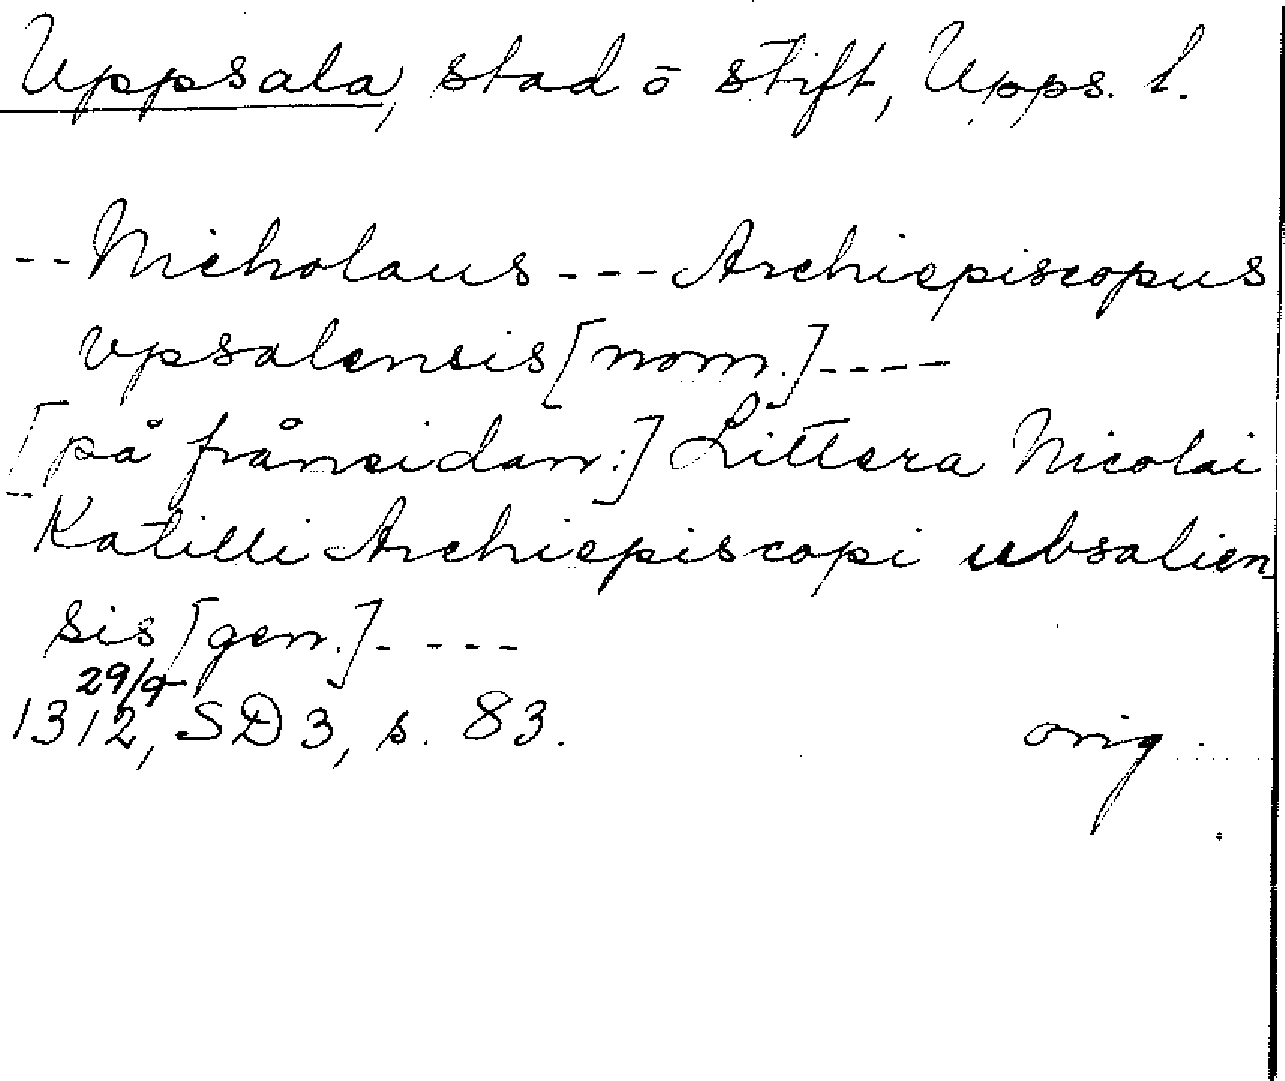 Uppsala, stad o stift, Upps. l.
-- Nicholaus --- Archiepiscopus
vpsalensis [nom.] ----
[på frånsidan:] Littera Nicolai
Katilli Archiepiscopi ubsalien
sis [gen.] ----
29/9
1312, SD 3, s. 83. orig.